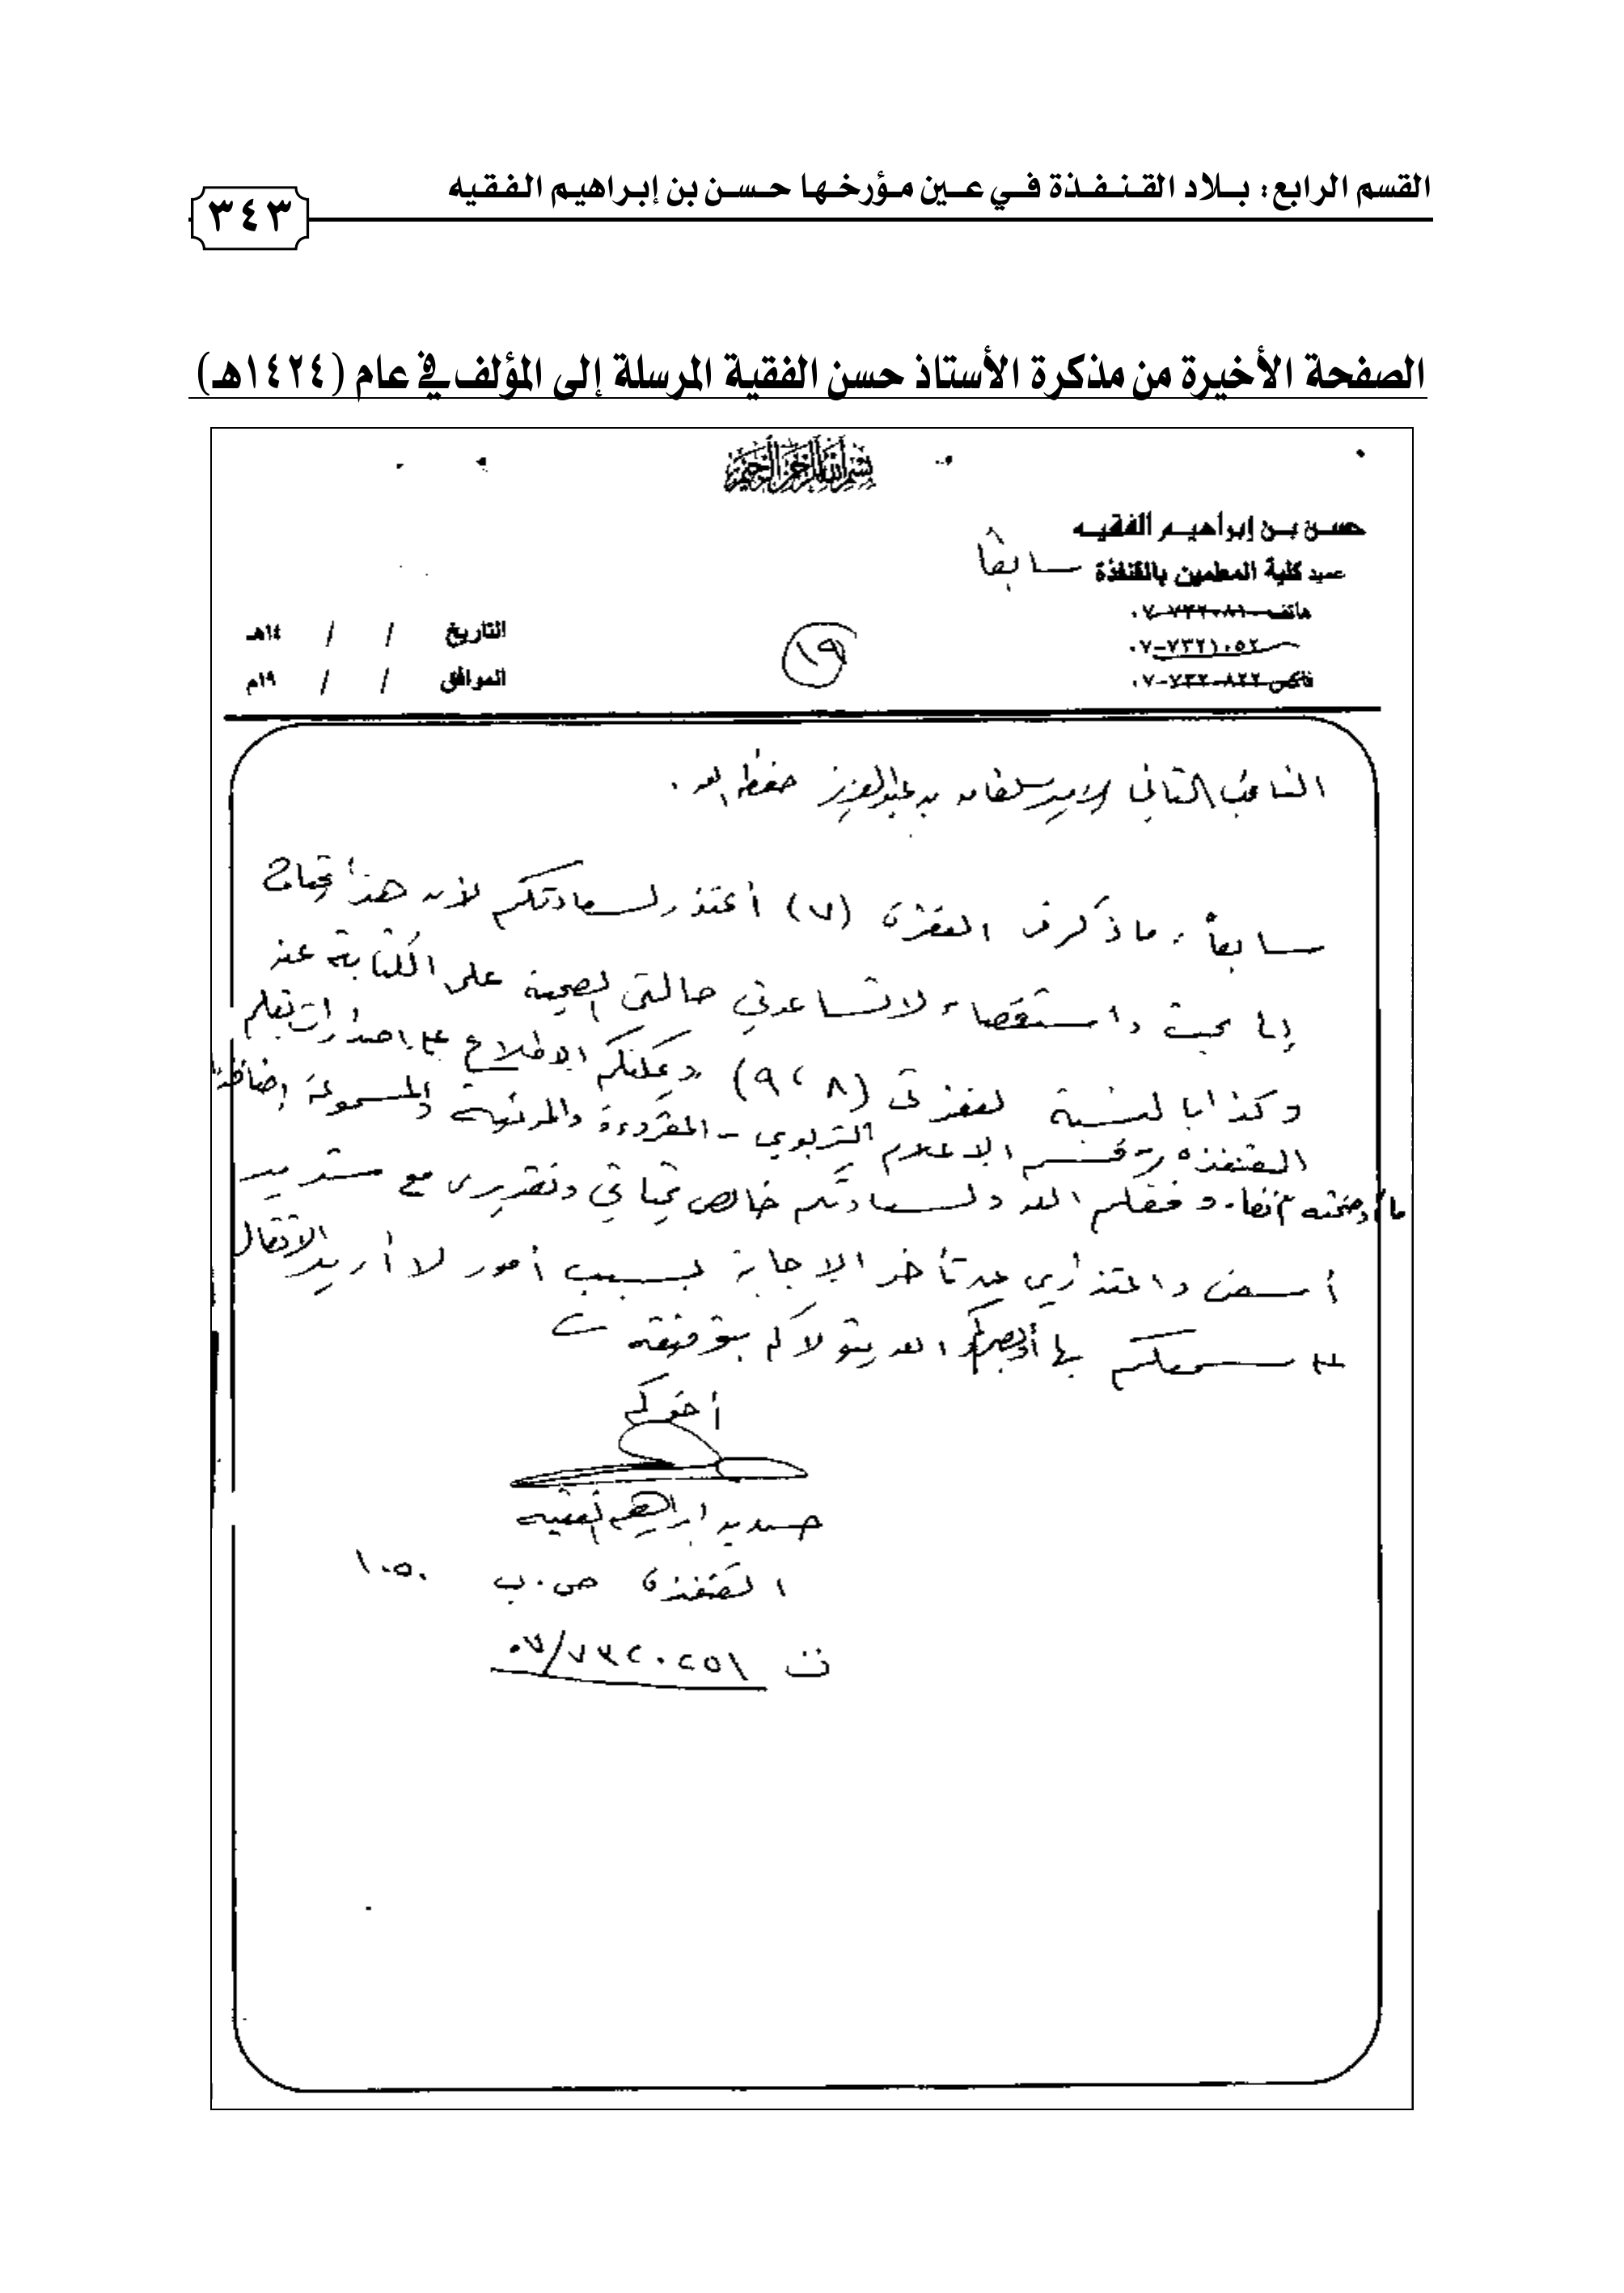 القسم الرابع: بلاد القنفذة في عين مؤرخها حسن بن إبراهيم الفقيه
٣٤٣
الصفحة الأخيرة من مذكرة الأستاذ حسن الفقية المرسلة إلى المؤلف في عام (١٤٢٤هـ)
بسم الله الرحمن الرحيم
حسن بن إبراهيم الفقيه
عميد كلية المعلمين بالقنفذة سابقاً
هاتف ٧٣٢٠٨١-٠٧
٧٣٢١٠٥٢-٠٧
فاكس ٧٣٢٠٨٢٢-٠٧
التاريخ / / ١٤هـ
الموافق / / ١٩م
١٩
النائب الثاني الامير سلطان بن عبدالعزيز حفظه الله .
سابعاً : ما ذكر في الفقرة (٧) أعتذر لسعادتكم لأن هذا يحتاج
إلى بحث واستقصاء لا تساعدني حالتي الصحية على الكتابة عنه
وكذا بالنسبة لفقرتي (٨ ، ٩) ويمكنكم الاطلاع على اصدارات تعليم
القنفذه قسم الاعلام التربوي - المقروءة والمرئية والمسموعة إضافة
ما أوضحته آنفا . وفقكم الله ولسعادتكم خالص تحياتي وتقديري مع شديد
أسفي واعتذاري عن تأخر الإجابة بسبب أمور لا أريد الاثقال
على سمعكم بها أو بصركم والله يتولاكم بتوفيقه
أخوكم
حسن بن ابراهيم الفقيه
القنفذة ص.ب ١٠٥٠
ت ٠٧/٧٣٢٠٢٥١